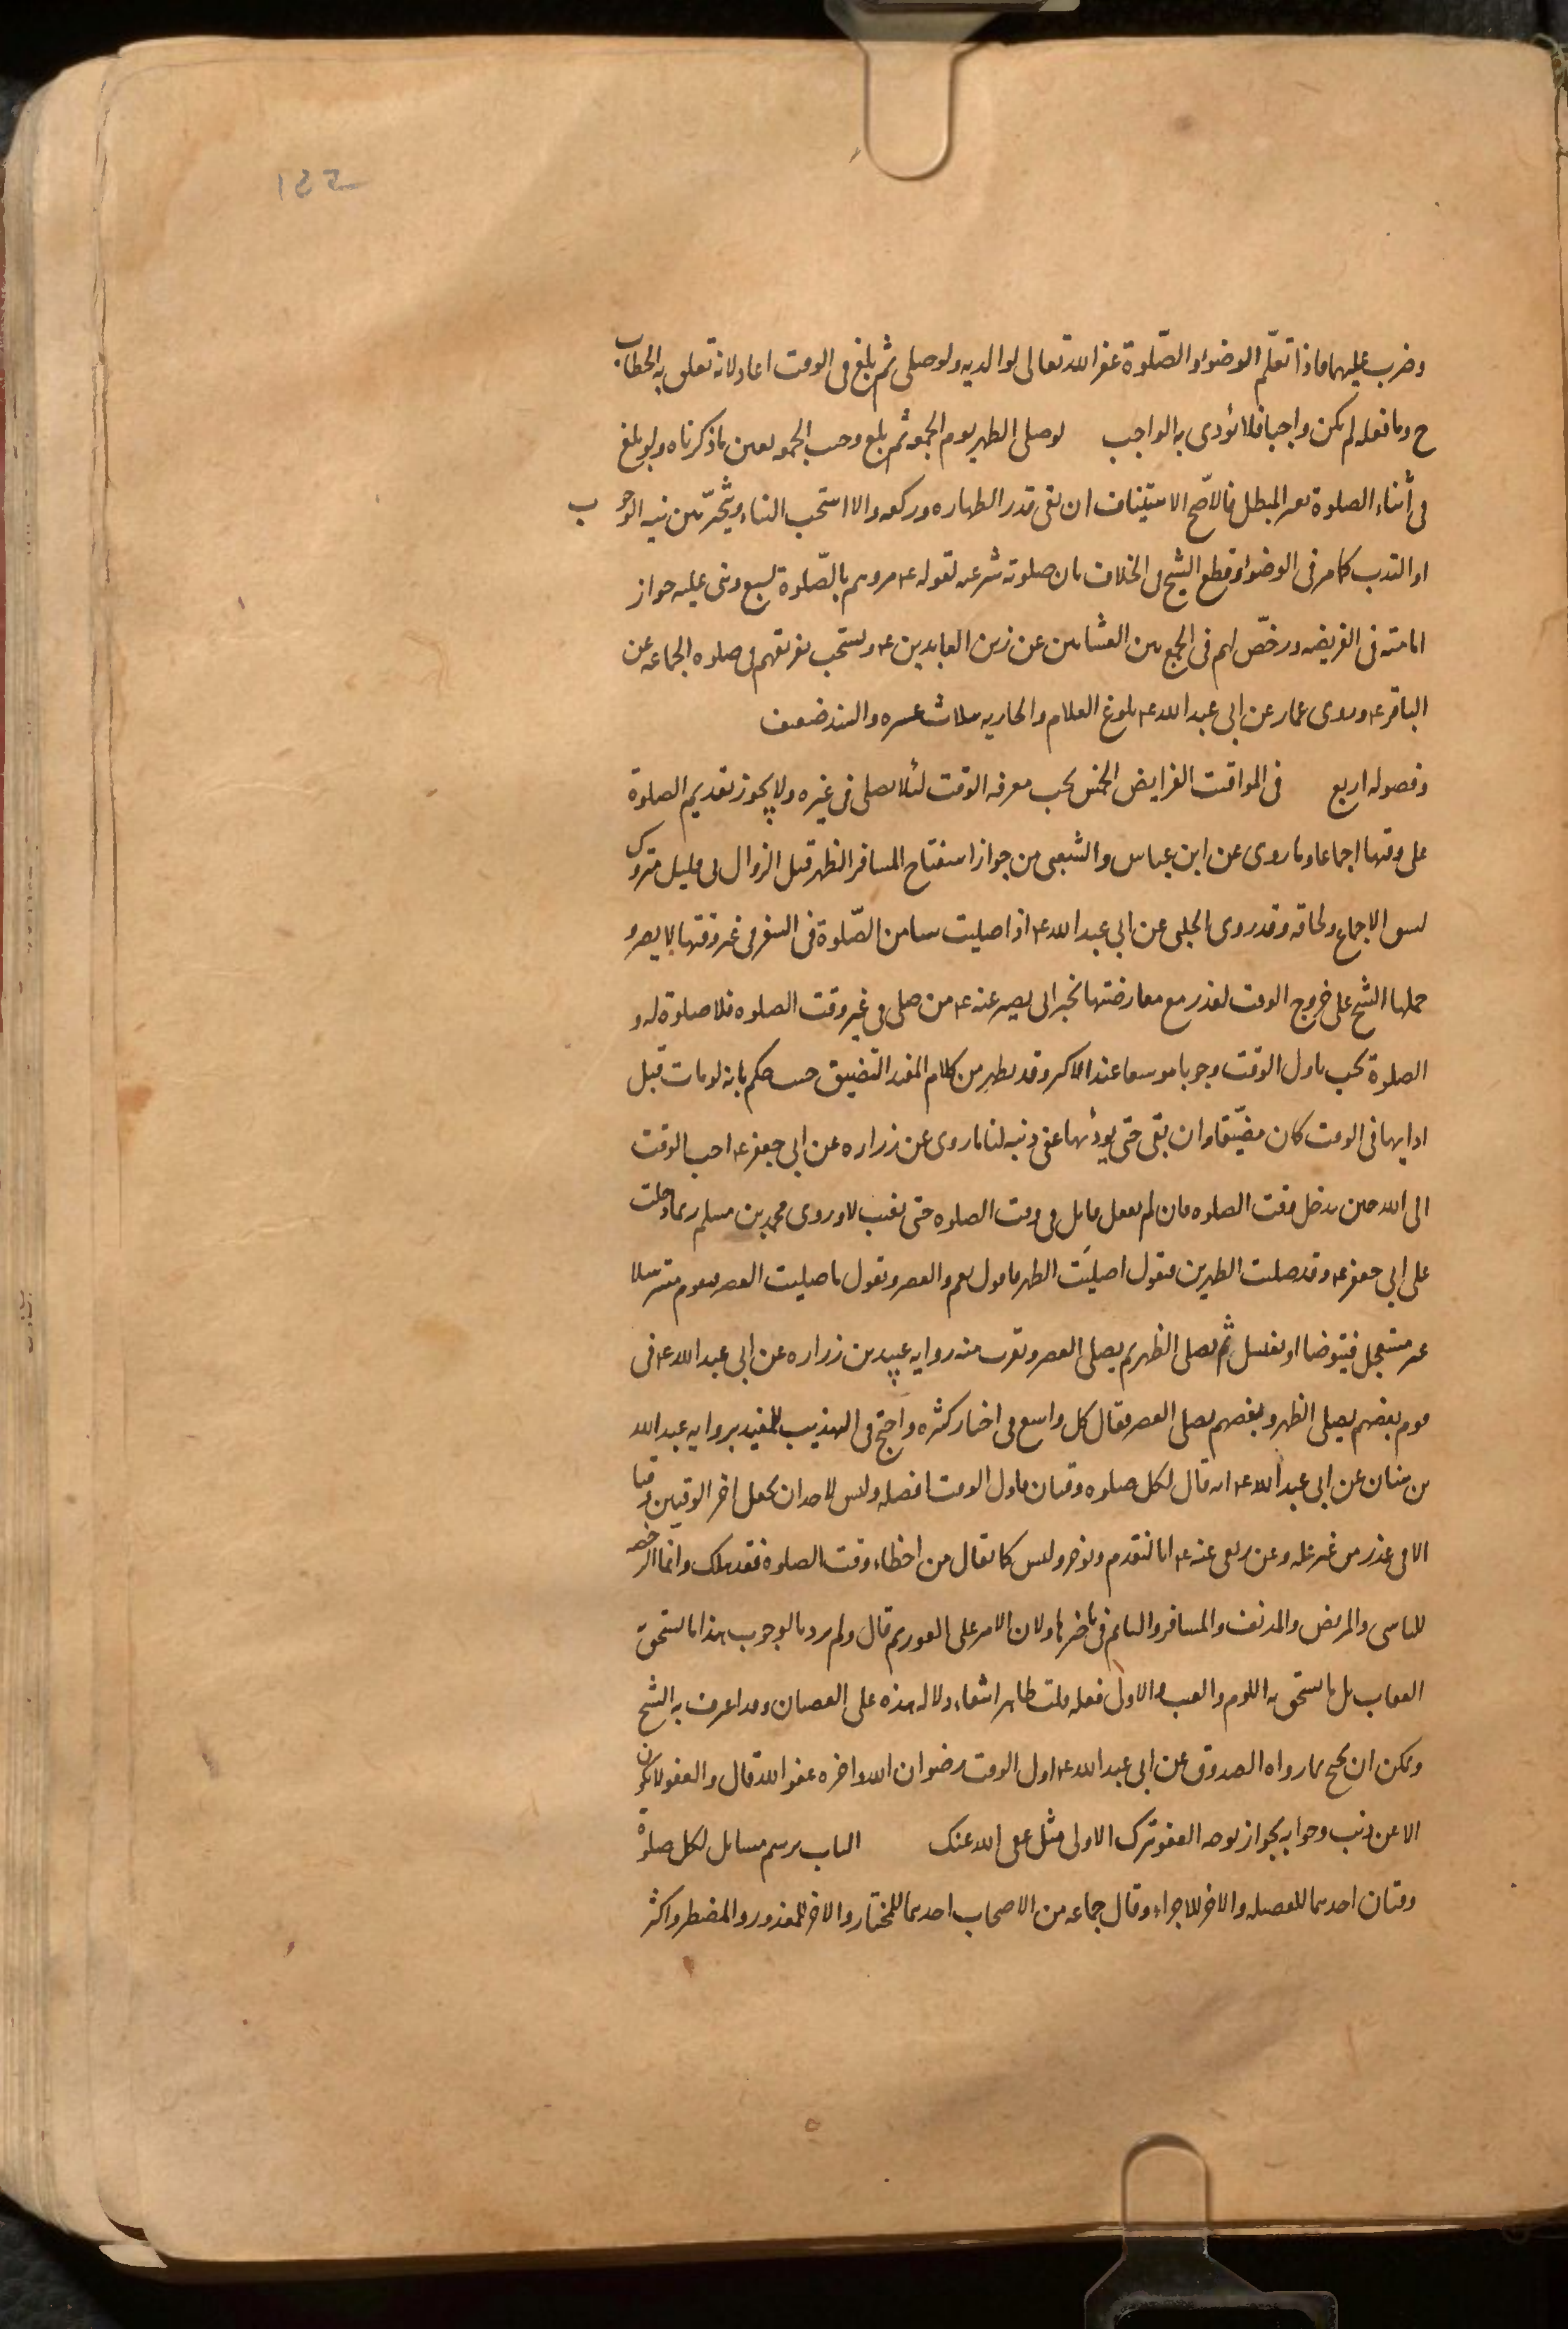 وضرب عليهما فاذا تعلّم الوضوء والصّلوة غفر الله تعالى لوالديه ولو صلى ثم بلغ فى الوقت اعاد لانه تعلق به الخطاب
ح وما فعله لم يكن واجبا فلا يؤدى به الواجب لو صلى الظهر يوم الجمعة ثم بلغ وجب الجمعه لعين ما ذكرناه ولو بلغ
فى أثناء الصلوة بغير المبطل فالاصّح الاستيناف ان بقى قدر الطهاره وركعه والا استحب البناء ويتخيّر بين نيه الوجوب
او الندب كما مر فى الوضوء وقطع الشيخ فى الخلاف بان صلوته شرعيه لقوله ع مروهم بالصّلوة لسبع وبنى عليه جواز
امامته فى الفريضه ورخّص لهم فى الجمع بين العشائين عن زين العابدين ع ويستحب تفريقهم فى صلوه الجماعه عن
الباقر ع وروى عمار عن ابى عبد الله ع بلوغ الغلام والجاريه بثلاث عشره والسند ضعيف
وفصوله اربع فى المواقيت الفرايض الخمس يجب معرفه الوقت لئلا يصلى فى غيره ولا يجوز تقديم الصلوة
على وقتها اجماعا وما روى عن ابن عباس والشعبى من جواز استفتاح المسافر الظهر قبل الزوال بقليل متروك
لسبق الاجماع ولحاقه وقد روى الحلبى عن ابى عبد الله ع اذا صليت شيئا من الصّلوة فى السفر فى غير وقتها لا يضر و
حملها الشيخ على خروج الوقت لعذر مع معارضتها بخبر ابى بصير عنه ع من صلى فى غير وقت الصلوه فلا صلوة له و
الصلوة تجب باول الوقت وجوبا موسعا عند الاكثر وقد يظهر من كلام المفيد التضيق حيث حكم بانه لو مات قبل
ادايها فى الوقت كان مضيّقا وان بقى حتى يؤديها عفى ذنبه لنا ما روى عن زراره عن ابى جعفر ع احب الوقت
الى الله حين يدخل وقت الصلوه فان لم يفعل فانك فى وقت الصلوه حتى تغيب لا وروى محمد بن مسلم ربما دخلت
على ابى جعفر ع وقد صليت الظهرين فيقول اصليت الظهر فاقول نعم والعصر ويقول ما صليت العصر فيقوم مترسلا
غير مستعجل فيتوضا او يغتسل ثم يصلى الظهر ثم يصلى العصر ويقرب منه روايه عبيد بن زراره عن ابى عبد الله ع فى
قوم بعضهم يصلى الظهر وبعضهم يصلى العصر فقال كل واسع فى اخبار كثيره واحتج فى التهذيب للمفيد بروايه عبد الله
بن سنان عن ابى عبد الله ع انه قال لكل صلوه وقتان فاول الوقت افضله وليس لاحد ان يجعل اخر الوقتين وقتا
الا فى عذر من غير عله وعن ربعى عنه ع انا لنقدم ونوخر وليس كما يقال من اخطاء وقت الصلوه فقد هلك وانما الرخصه
للناسى والمريض والمدنف والمسافر والنائم فى تاخيرها ولان الامر على الفور ثم قال ولم نرد بالوجوب هذا ما يستحق
العقاب بل ما يستحق به اللوم والعتب والاولى فعله قلت ظاهر انتفاء دلاله هذه على العصيان وقد اعترف به الشيخ
ويمكن ان يحتج بما رواه الصدوق عن ابى عبد الله ع اول الوقت رضوان الله واخره عفو الله قال والعفو لا يكون
الا عن ذنب وجوابه بجواز توجه العفو بترك الاولى مثل عفى الله عنك الباب يرسم مسايل لكل صلوة
وقتان احدهما للفضيله والاخر للاجزاء وقال جماعه من الاصحاب احدهما للمختار والاخر للمعذور والمضطر واكثر